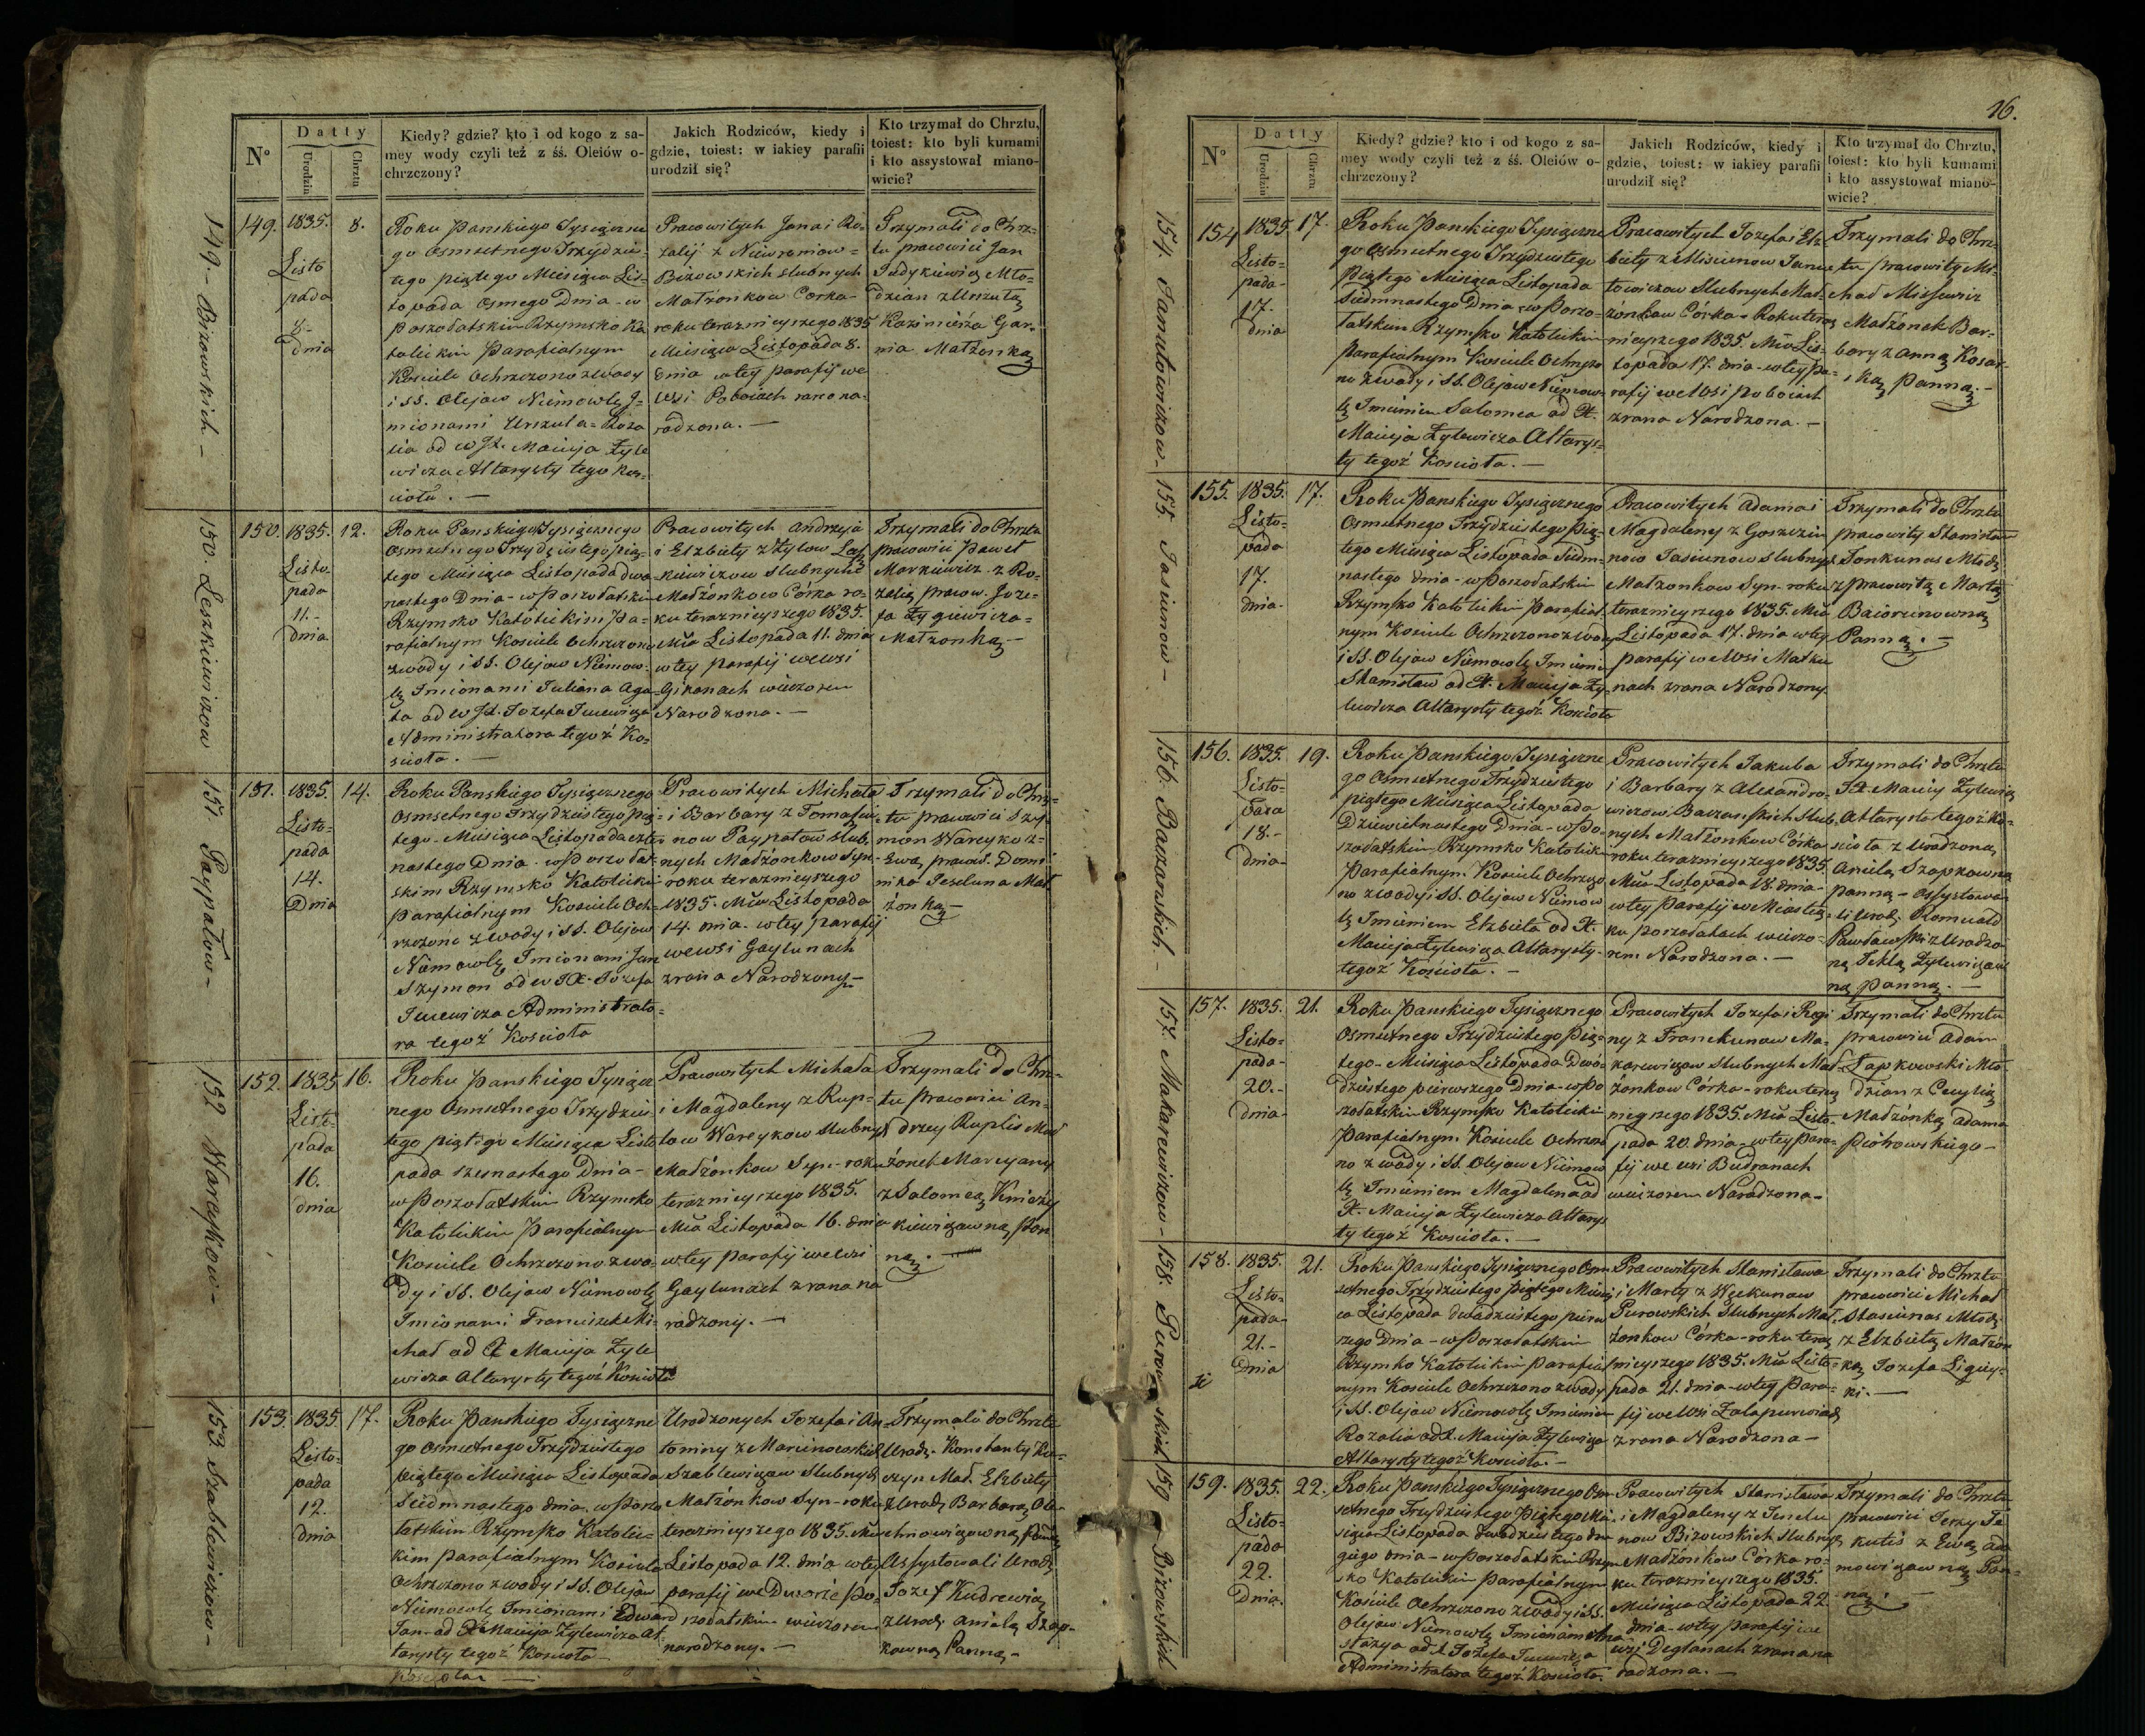 N°
Datty
Urodzin
Chrztu
Kiedy? gdzie? kto i od kogo z sa-
mey wody czyli też z śś. Oleiów o-
chrzczony?
Jakich Rodziców, kiedy i
gdzie, toiest: w iakiey parafii
urodził się?
Kto trzymał do Chrztu,
toiest: kto byli kumami
i kto assystował miano-
wicie?
149. Bizowskich
149.
1835.
Listo
pada
8.-
dnia
8.
Roku Panskiego Tysiączne
go osmsetnego Trzydzie-
tego piątego Miesiąca Lis-
topada osmego Dnia - w
Poszołatskim Rzymsko Ka
tolickim Parafialnym
Kościele ochrzczono z wody
i SS. Olejow Niemowlę J-
mionami Urszula-Roza
lia od W JX. Macieja Żyle
wicza Altarysty tego Kos-
cioła. -
Pracowitych Jana i Ro-
zalij z
Bizowskich slubnych
Małżonkow Corka-
roku teraznieyszego 1835
Miesiąca Listopada 8.
dnia w tey parafij we
Wsi Poboiach rano na-
radzona. -
Trzymali do Chrz-
tu pracowici Jan
Judykiewicz Mło-
dzian z Urszulą
Kazimierza Gar-
nia Małżonką
150. Leszkiewiczow
150.
1835.
Listo-
pada
11.-
dnia
12.
Roku Panskiego Tysiącznego
Osmsetnego Trzydziestego pią-
tego Miesiąca Listopada dwa-
nastego Dnia - w Poszołatskim
Rzymsko Katolickim Pa-
rafialnym Kosciele Ochrzczono
z wody i SS. Olejow Niemow-
lę Imionami Juliana Aga-
ta od W JX. Jozefa Jucewicza
Administratora tegoż Ko-
scioła. -
Pracowitych Andrzeja
i Elzbiety z Żylow Lesz
kiewiczow slubnych
Małżonkow Córka ro-
ku teraznieyszego 1835.
Mca Listopada 11. dnia
w tey parafij we Wsi
Gikanach wieczorem
Narodzona. -
Trzymali do Chrztu
pracowici Paweł
Markiewicz z Ro-
zalią pracow. Joze-
fa Żygiewicza-
Małżonką-
151 Paypałow-
151.
1835.
Listo-
pada
14.
Dnia
14.
Roku Panskiego Tysiącznego
Osmsetnego Trzydziestego pią-
tego. Miesiąca Listopada czter
nastego Dnia. w Poszołat-
skim Rzymsko Katolicki
parafialnym Kościele Och-
rzczono z wody i SS. Olejow
Niemowlę Imionami Jan
Szymon od W JX. Jozefa
Jucewicza Administrato-
ra tegoż Kościoła
Pracowitych Michała
i Barbary z Tomasiu-
now Paypałow slub-
nych Małżonkow Syn-
roku teraznieyszego
1835. Mca Listopada
14. dnia. w tey parafij
we Wsi Gaylunach
zrana Narodzony-
Trzymali do Chrz-
tu pracowici Szy-
mon Wareyko z-
Ewą pracow. Domi
nika Jeseluna Mał
żonką-
152 Wareykow-
152.
1835
Listo-
pada
16.
dnia
16.
Roku Panskiego Tysiącz
nego Osmsetnego Trzydzies
tego piątego Miesiąca Listo
pada szesnastego Dnia-
w Poszołatskim Rzymsko
Katolickim Parafialnym
Kościele Ochrzczono z wo-
dy i SS. Olejow Niemowlę
Imionami Franciszek Mi-
chał od X Macieja Żyle
wicza Altarysty tegoż Kościoła
Pracowitych Michała
i Magdaleny z Rup-
low Wareykow slubnych
Małżonkow Syn-roku
teraznieyszego 1835.
Mca Listopada 16. dnia
w tey parafij we Wsi
Gaylunach zrana na
radzony. -
Trzymali do Chrz-
tu Pracowici An-
drzey Ruplis Mał
żonek Marcyany
z Salomeą Kniaży
kiewiczowną Pan
ną. -
153. Szablewiczow-
153.
1835
Listo-
pada
12.
dnia
17.
Roku Panskiego Tysiączne
go osmsetnego Trzydziestego
piątego Miesiąca Listopada
Siedmnastego dnia. w Poszo
łatskim Rzymsko Katolic-
kim parafialnym Kosciele
Ochrzczono z wody i SS. Olejow
Niemowlę Imionami Edward
Jan od X Macieja Żylewicza Al
tarysty tegoż Kościoła
Urodzonych Jozefa i An-
toniny z Marcinowskich
Szablewiczow Slubnych
Małżonkow Syn-roku
teraznieyszego 1835. Mca
Listopada 12. dnia w tey
parafij we Dworze Po-
szołatskim wieczorem
narodzony. -
Trzymali do Chrztu
Urodz. Konstanty Ku-
czyn Mał. Elzbiety
z Urodz. Barbarą
Panną
Assystowali Urodz.
Jozef Kudrewicz
z Urodz. Anielą Szap-
kowną Panną-
16.
N°
Datty
Urodzin
Chrztu
Kiedy? gdzie? kto i od kogo z sa-
mey wody czyli też z śś. Oleiów o-
chrzczony?
Jakich Rodziców, kiedy i
gdzie, toiest: w iakiey parafii
urodził się?
Kto trzymał do Chrztu,
toiest: kto byli kumami
i kto assystował miano-
wicie?
154. Janutowiczow-
154
1835
Listo-
pada-
17.
dnia
17.
Roku Panskiego Tysiączne
go Osmsetnego Trzydziestego
Piątego Miesiąca Listopada
Siedmnastego Dnia w Poszo-
łatskim Rzymsko Katolickim
Parafialnym Kosciele Ochrzczo
no z wody i SS. Olejow Niemow-
lę Imieniem Salomea od X.
Macieja Żylewicza Altarys-
ty tegoż Kościoła. -
Pracowitych Jozefa i Elz
biety z Misiunow Janu
towiczow Slubnych Mał-
żonkow Córka - Roku teraz
nieyszego 1835. Mca Lis-
topada 17. dnia - w tey Pa-
rafij we Wsi Poboiach
zrana Narodzona. -
Trzymali do Chrz
tu pracowity Mi-
chał Missewicz
Małżonek Bar-
bary z Anną Kosar-
ską Panną. -
155 Jasiunow-
155.
1835.
Listo-
pada
17.
dnia-
17.
Roku Panskiego Tysiącznego
Osmsetnego Trzydziestego Pią-
tego Miesiąca Listopada Siedm-
nastego dnia - w Poszołatskim
Rzymsko Katolickim Parafial-
nym Kosciele Ochrzczono z wody
i SS. Olejow Niemowlę Imieniem
Stanisław od X. Macieja Ży-
lewicza Altarysty tegoż Kościoła
Pracowitych Adama i
Magdaleny z Goszczew
now Jasiunow slubnych
Małżonkow Syn. roku
teraznieyszego 1835. Mca
Listopada 17. dnia w tey
parafij we Wsi Matku
nach zrana Narodzony
Trzymali do Chrztu
pracowity Stanisław
Jonkunas Młodz
z pracowitą Martą
Baiorunowną
Panną. -
156. Baczanskich. -
156.
1835.
Listo-
pada
18.-
dnia-
19.
Roku Panskiego Tysiączne
go Osmsetnego Trzydziestego
piątego Miesiąca Listopada
Dziewietnastego Dnia - w Po-
szołatskim Rzymsko Katolick
Parafialnym Kosciele Ochrzczo
no z wody i SS. Olejow Niemow
lę Imieniem Elzbieta od X.
Macieja Żylewicza Altarysty-
tegoż Kościoła. -
Pracowitych Jakuba
i Barbary z Alexandro-
wiczow Baczanskich Slub-
nych Małżonkow Córka
roku teraznieyszego 1835.
Mca Listopada 18. dnia-
w tey Parafij w Miastecz-
ku poszołatach wieczo-
rem Narodzona. -
Trzymali do Chrztu
JX. Maciey Żylewicz
Altarysta tegoż Ko-
scioła z Urodzoną
Anielą Szapkowną
panną - Assystowa
li Urodz. Romuald
Pawławski z Urodzo
ną Teklą Żylewiczow
ną Panną. -
157. Makarewiczow-
157.
1835.
Listo-
pada-
20.-
dnia-
21.
Roku Panskiego Tysiącznego
Osmsetnego Trzydziestego Pią-
tego - Miesiąca Listopada Dwa-
dziestego pierwszego Dnia - w Po
szołatskim Rzymsko Katolickim
Parafialnym Kosciele Ochrzczo
no z wody i SS. Olejow Niemow
lę Imieniem Magdalena od
X. Macieja Żylewicza Altarys
ty tegoż Kościoła. -
Pracowitych Jozefa i Regi
ny z Franckunow Ma-
karewiczow slubnych Mał-
żonkow Córka - roku teraz
nieyszego 1835. Mca Listo-
pada 20. dnia - w tey Para-
fij we wsi Budranach
wieczorem Naradzona-
Trzymali do Chrztu
pracowici Adam
Łapkowski Mło-
dzian z Cecylią
Małżonką Adama
Piotrowskiego-
158. Purowskich
158.
1835.
Listo-
pada-
21.-
Dnia
21.
Roku Panskiego Tysiącznego Osm
setnego Trzydziestego piątego Miesią
ca Listopada dwadziestego pierw
szego Dnia - w Poszołatskim
Rzymsko Katolickim parafial
nym Kosciele Ochrzczono z wody
i SS. Olejow Niemowlę Imieniem
Rozalia od X. Macieja Żylewicza
Altarysty tegoż Kościoła. -
Pracowitych Stanisława
i Marty z Węckunow
Purowskich Slubnych Mał-
żonkow Córka - roku teraz
nieyszego 1835. Mca Listo-
pada 21. dnia - w tey Para-
fij we Wsi Zalapurwiach
zrana Narodzona-
Trzymali do Chrztu
pracowici Michał
Stasiunas Młodz.
z Elzbietą Małżon
ką Jozefa Ligiey-
ki. -
159 Bizowskich
159.
1835.
Listo-
pada
22.
Dnia.
22.
Roku Panskiego Tysiącznego Osm
setnego Trzydziestego Piątego Mie-
siąca Listopada dwadziestego dru
giego dnia - w Poszołatskim Rzym
sko Katolickim Parafialnym
Kościele Ochrzczono z wody i SS.
Olejow Niemowlę Imieniem Ana
stazya od X Jozefa Jucewicza
Administratora tegoż Kościoła.
Pracowitych Stanisława
i Magdaleny z Jenelu
now Bizowskich slubnych
Małżonkow Córka ro-
ku teraznieyszego 1835.
Miesiąca Listopada 22.
dnia - w tey parafij we
wsi Deglanach zrana na
radzona. -
Trzymali do Chrztu
pracowici Jerzy Ja
kutis z Ewą Ada
mowiczowną Pan-
ną. -